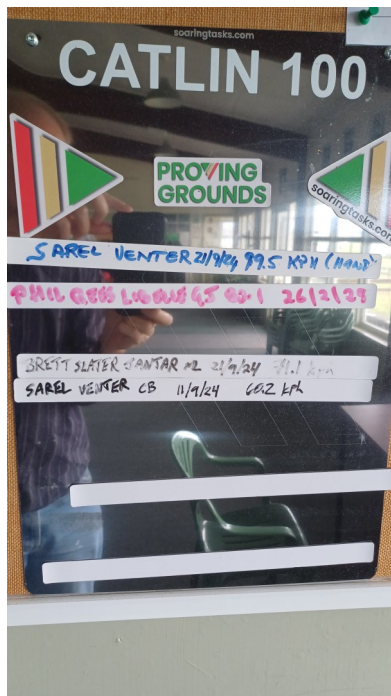 soaringtasks.com
CATLIN 100
PROVING
GROUNDS
soaringtasks.com
SAREL VENTER 21/9/24 99.5 KPH
PHIL 26/2/23
BRETT SLATER JANTAR 21/9/24 71.1 kph
SAREL VENTER CB 11/9/24 60.2 kph